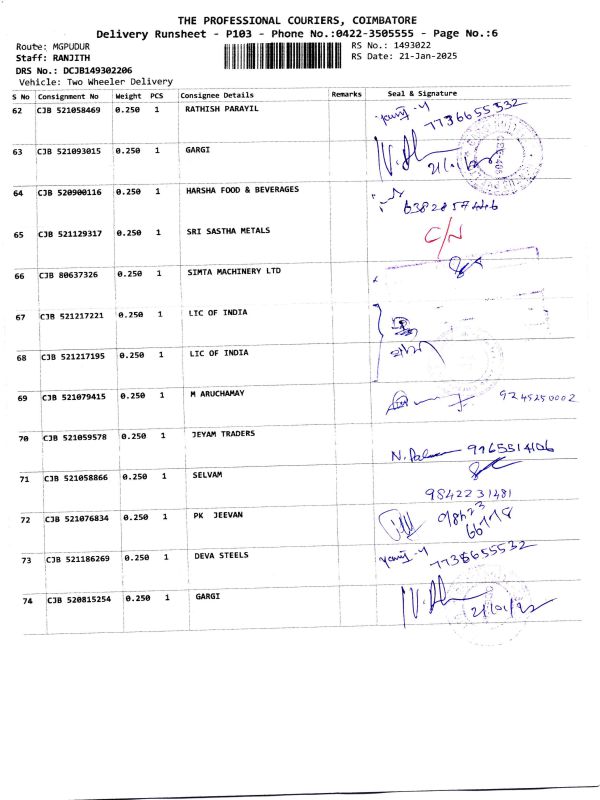 THE PROFESSIONAL COURIERS, COIMBATORE
Delivery Runsheet - P103 - Phone No.:0422-3505555 - Page No.:6
Route: MGPUDUR RS No.: 1493022
Staff: RANJITH RS Date: 21-Jan-2025
DRS No.: DCJB149302206
Vehicle: Two Wheeler Delivery
S No Consignment No Weight PCS Consignee Details Remarks Seal & Signature
62 CJB 521058469 0.250 1 RATHISH PARAYIL
7736655532
63 CJB 521093015 0.250 1 GARGI
64 CJB 520900116 0.250 1 HARSHA FOOD & BEVERAGES
65 CJB 521129317 0.250 1 SRI SASTHA METALS C/N
66 CJB 80637326 0.250 1 SIMTA MACHINERY LTD
67 CJB 521217221 0.250 1 LIC OF INDIA
68 CJB 521217195 0.250 1 LIC OF INDIA
69 CJB 521079415 0.250 1 M ARUCHAMAY 9245250002
70 CJB 521059578 0.250 1 JEYAM TRADERS
9965514106
71 CJB 521058866 0.250 1 SELVAM
9842231481
72 CJB 521076834 0.250 1 PK JEEVAN
73 CJB 521186269 0.250 1 DEVA STEELS 7736655532
74 CJB 520815254 0.250 1 GARGI